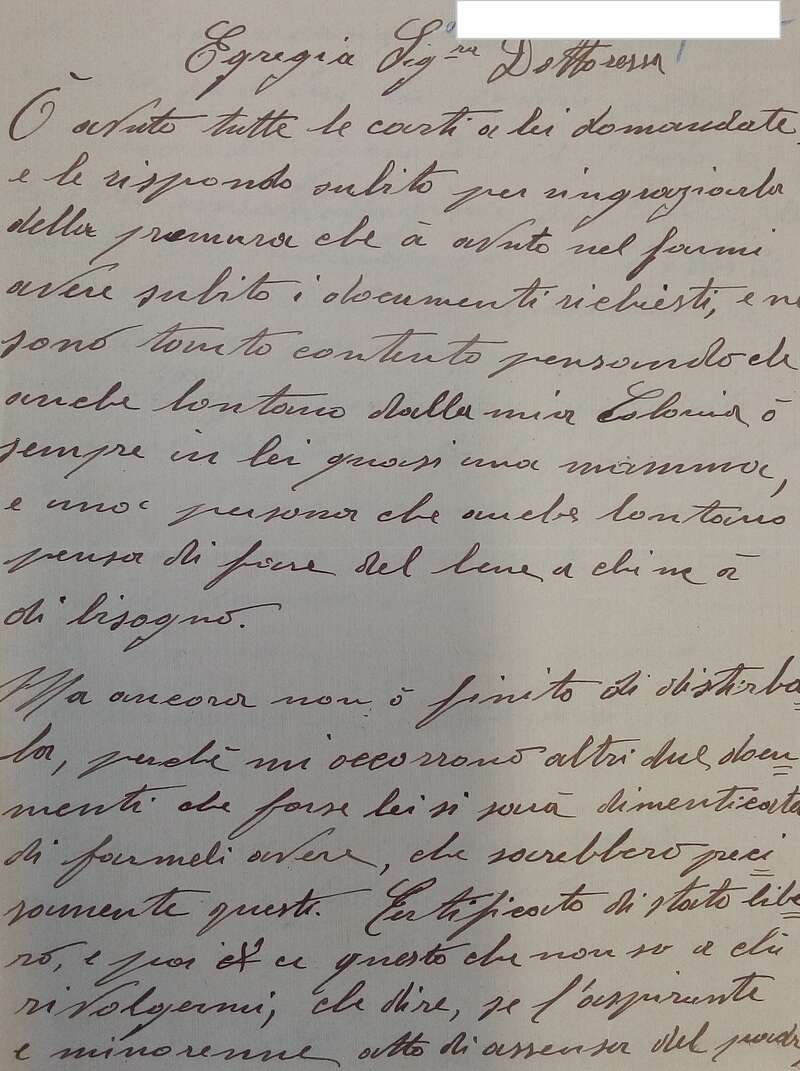 Egregia Sig.ra Dottoressa
Ò avuto tutte le carti a lei domandate,
e le rispondo subito per ringraziarla
della premura che à avuto nel farmi
avere subito i documenti richiesti, e ne
sono tanto contento pensando che
anche lontano dalla mia Colonia ò
sempre in lei quasi una mamma,
e una persona che anche lontano
pensa di fare del bene a chi ne à
di bisogno.
Ma ancora non ò finito di disturba=
la, perchè mi occorrono altri due docu=
menti che forse lei si sarà dimenticata
di farmeli avere, che sarebbero preci=
samente questi. Certificato di stato libe=
ro, e poi c'è questo che non so a chi
rivolgermi, che dire, se l'aspirante
e minorenne atto di assensa del padr